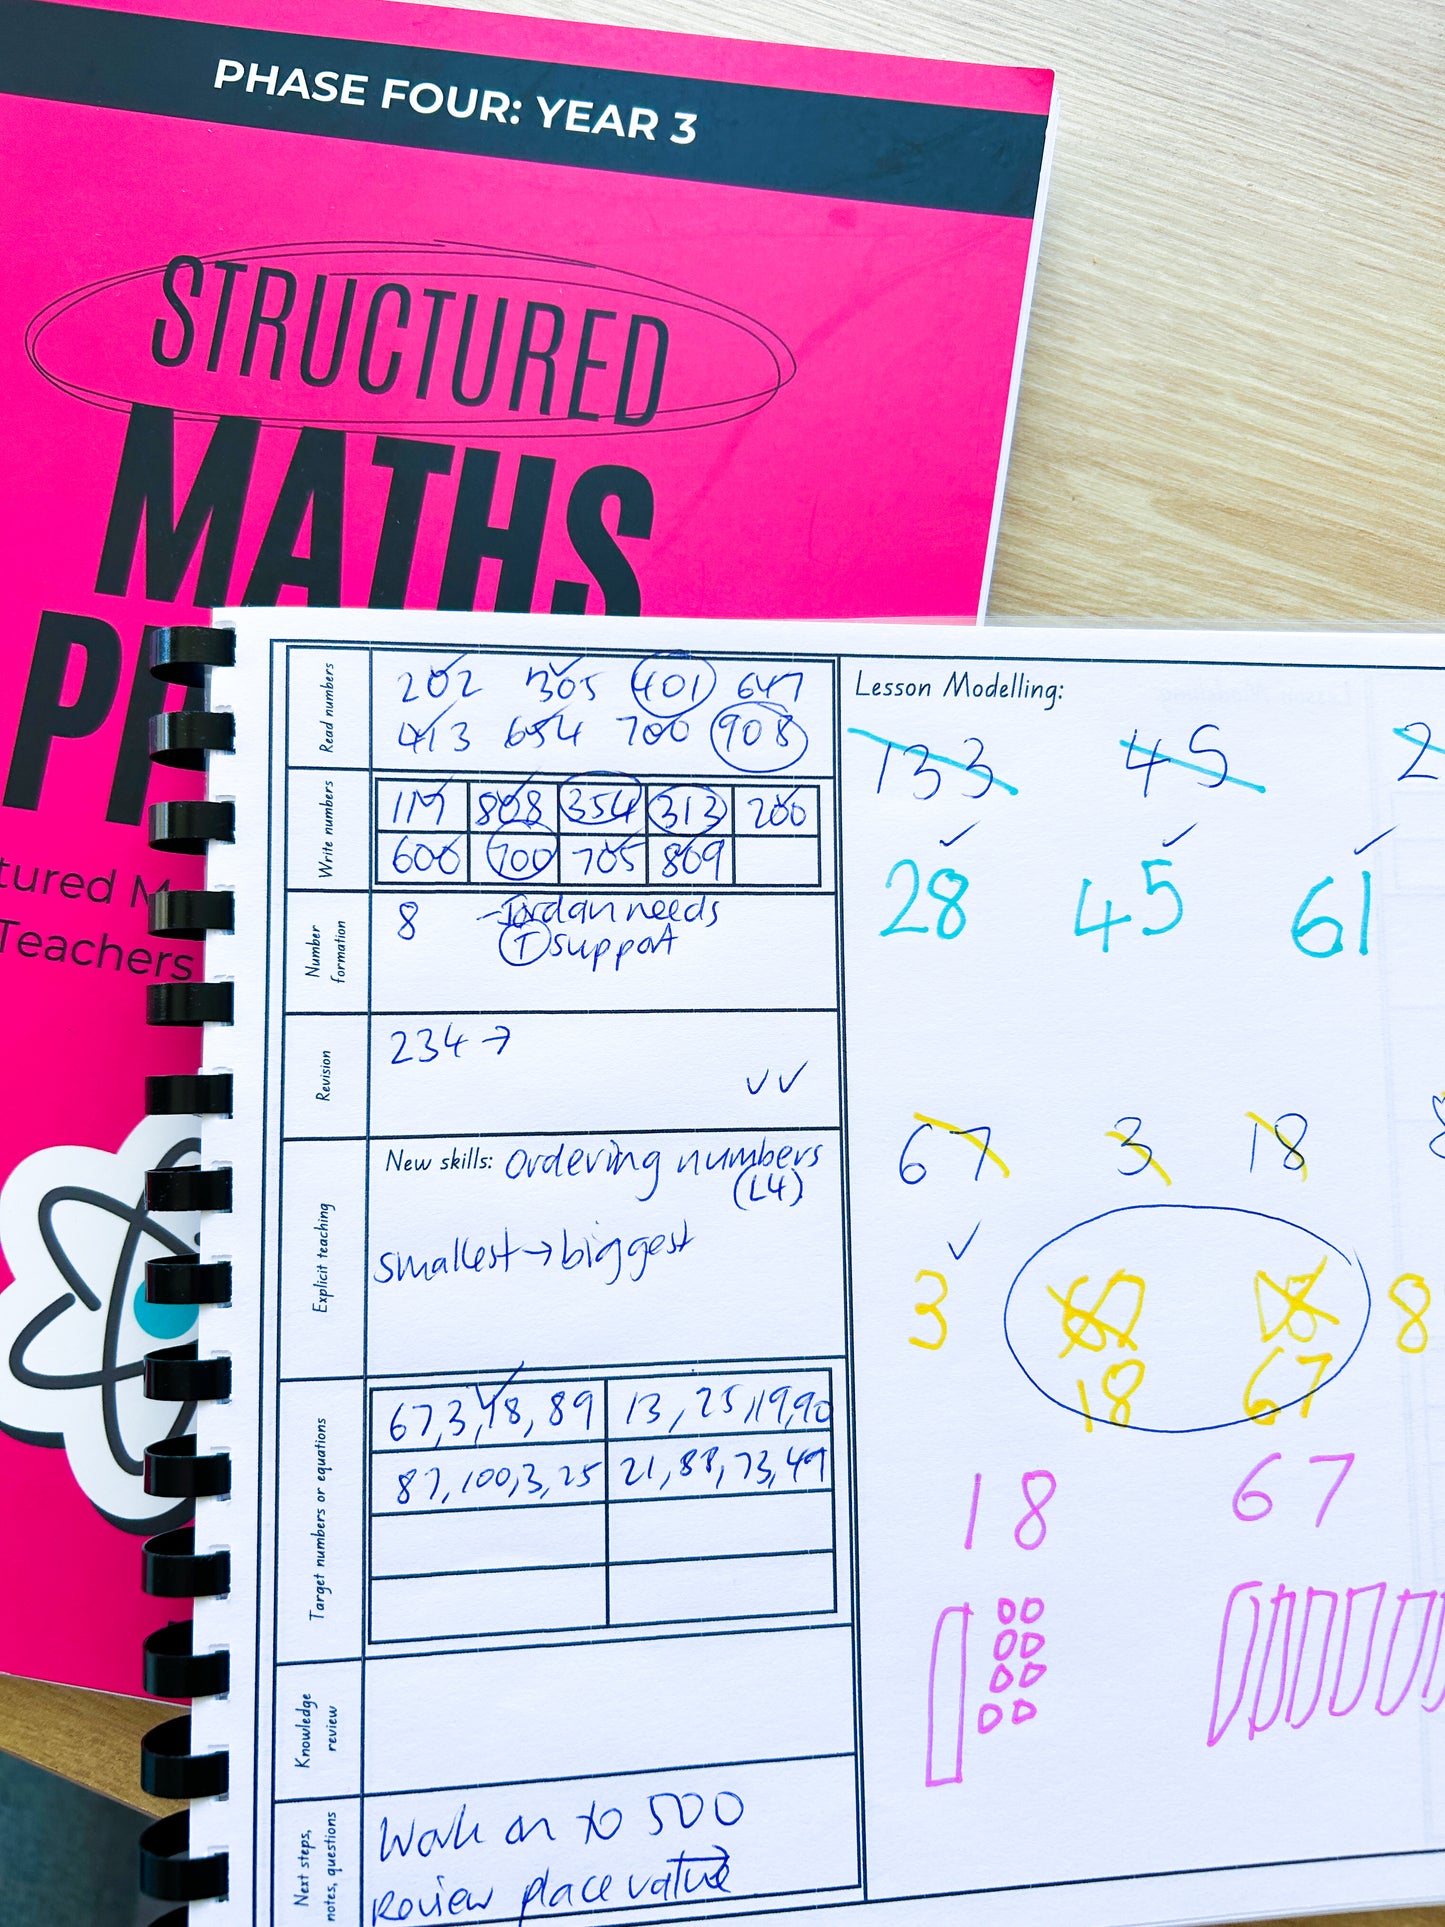 PHASE FOUR: YEAR 3
STRUCTURED
MATHS
Teachers
Read numbers
202 305 401 647
413 654 700 908
Write numbers
117 808 354 313 200
600 700 705 809
Number formation
8 - Jordan needs
T support
Revision
234 →
✓✓
Explicit teaching
New skills: ordering numbers
(L4)
smallest → biggest
Target numbers or equations
67, 3, 18, 89 13, 25, 19, 90
87, 100, 3, 25 21, 88, 73, 49
Knowledge review
Next steps, notes, questions
Work on to 500
Review place value
Lesson Modelling:
133 45 2
28 45 61
67 3 18
3 67 18 8
18 67
18 67